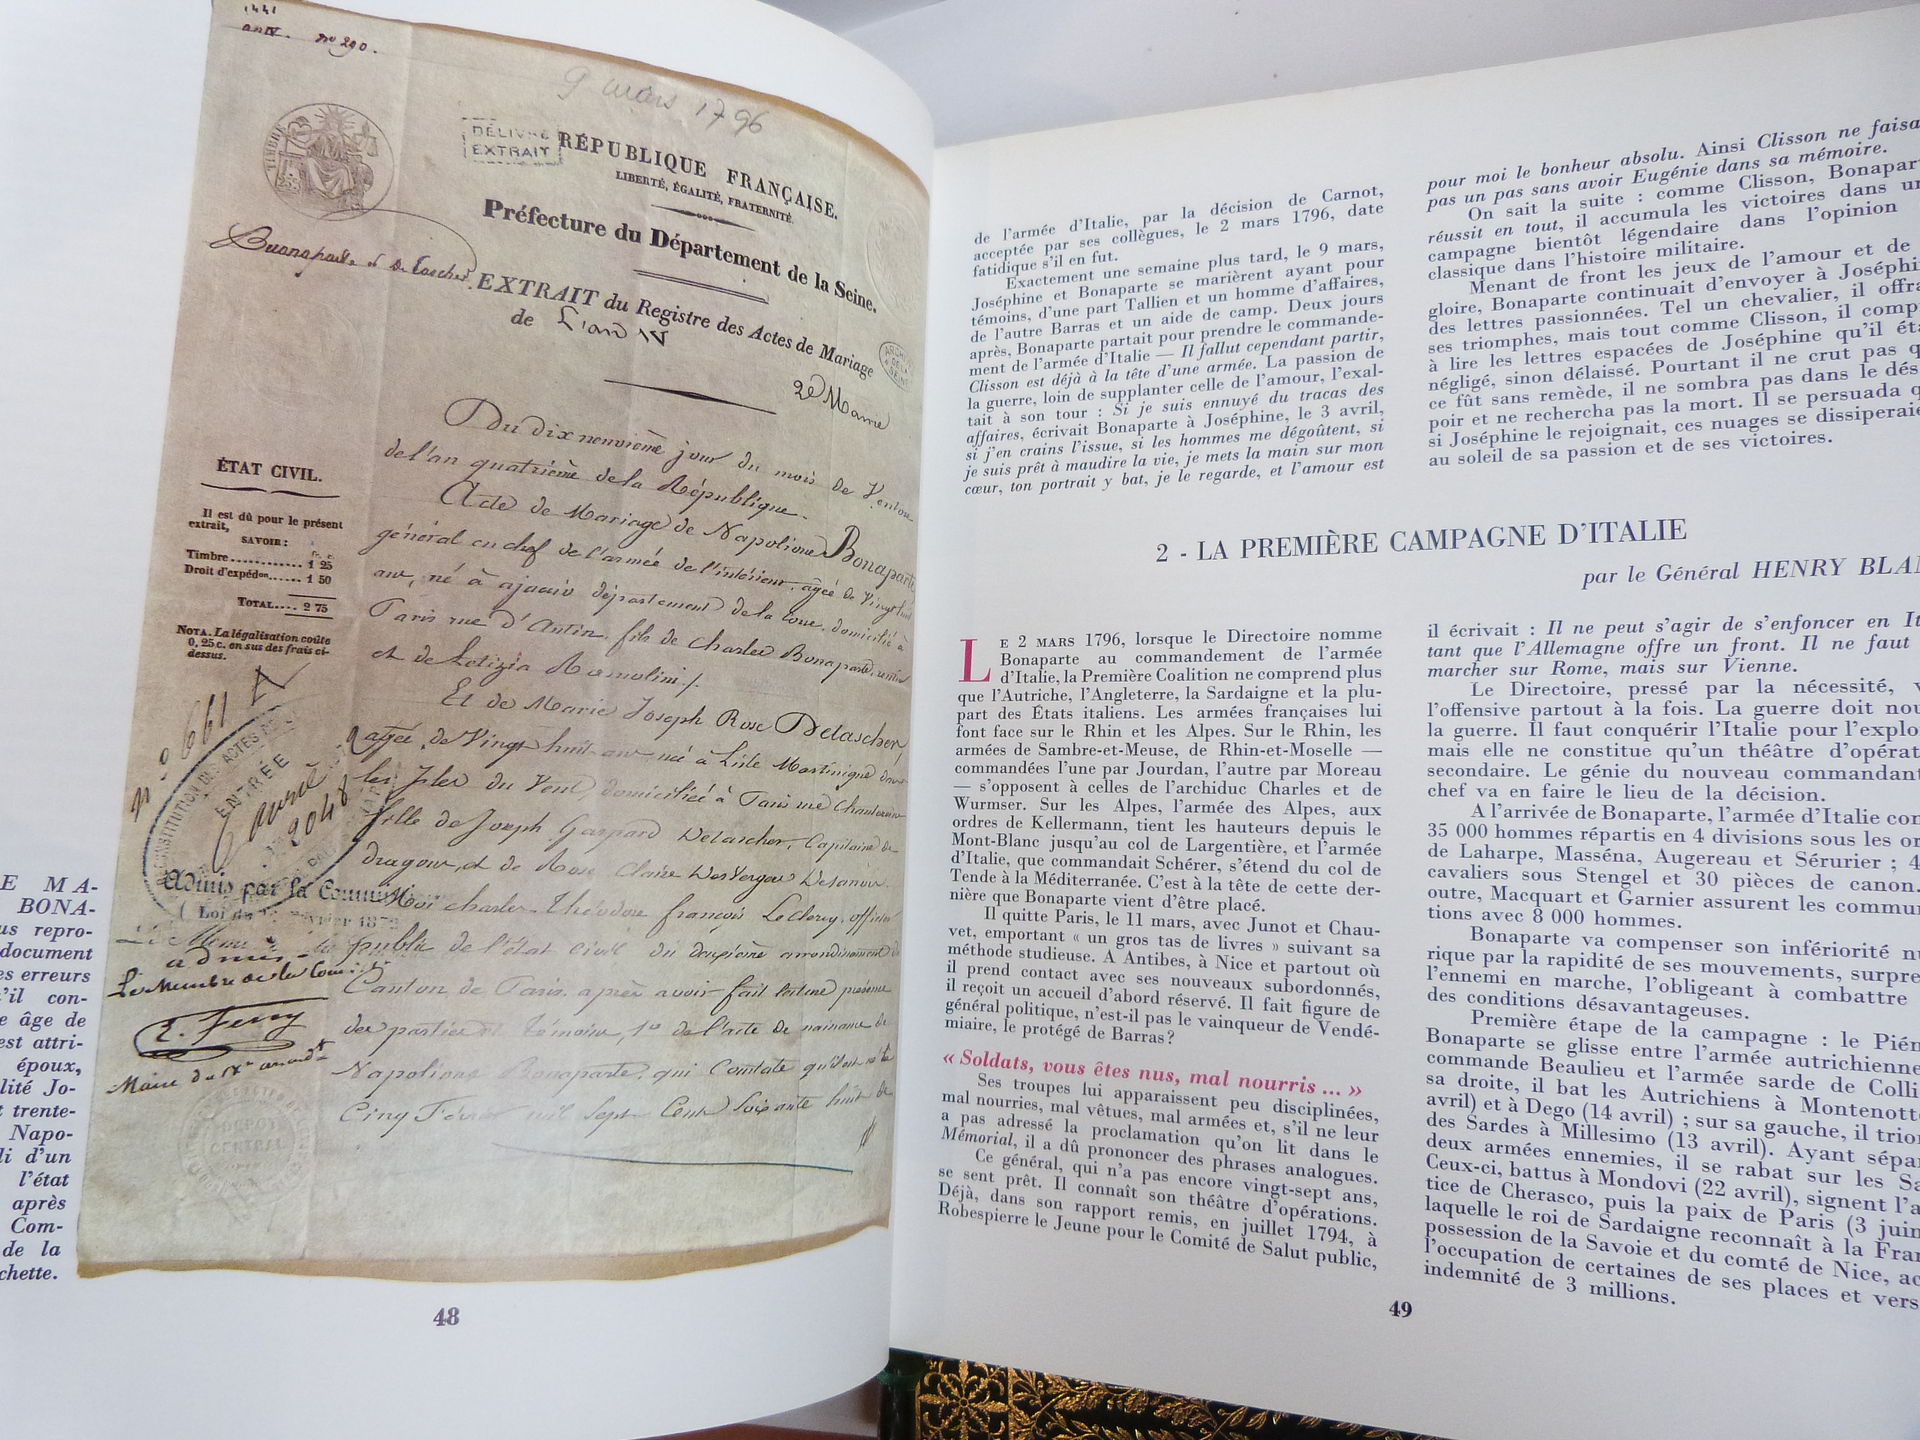 1441
an IV. nº 290.
9 mars 1796
TIMBRE
DÉLIVRÉ
EXTRAIT
RÉPUBLIQUE FRANÇAISE.
LIBERTÉ, ÉGALITÉ, FRATERNITÉ.
Préfecture du Département de la Seine.
Buonaparte et De Tascher.
EXTRAIT du Registre des Actes de Mariage
de L'an IV
ARCHIVES
DE LA
SEINE
2e Mairie
ÉTAT CIVIL.
Il est dû pour le présent
extrait,
SAVOIR :
fr. c.
Timbre............ 1 25
Droit d'expédon...... 1 50
TOTAL.... 2 75
NOTA. La légalisation coûte
0, 25 c. en sus des frais ci-
dessus.
Du dix neuvième jour du mois de Ventose
de l'an quatrième de la République.
Acte de Mariage de Napolione Bonaparte
général en chef de l'armée de l'intérieur, agée de Vingt huit
ans, né à ajaccio département de la Corse, domicilié à
Paris rue d'Antin, fils de Charles Bonaparte, rentier
et de Letizia Ramolini /.
Et de Marie Joseph Rose Detascher,
agée de Vingt huit ans née à L'isle Martinique dans
les Isles du Vent, domiciliée à Paris rue Chantereine
fille de Joseph Gaspard Detascher, Capitaine de
dragons, et de Rose Claire Desvergers Desanois.
Moi Charles Théodore françois Leclercq, officier
public de l'état civil du deuxième arrondissement du
Canton de Paris, après avoir fait lecture en présence
des parties et témoins, 1º de l'acte de naissance de
Napolione Bonaparte, qui Constate qu'il est né le
Cinq Février mil sept Cent soixante huit de
nº 661 A
RECONSTITUTION DES ACTES DE
ENTRÉE
avril
2048
Admis par la Commission
( Loi du 12 Février 1872
Le Membre de la
admis
Le Membre de la Com
E. Ferry
Maire du IXe arrondt
DÉPOT
CENTRAL
E MA-
BONA-
us repro-
document
es erreurs
'il con-
e âge de
est attri-
époux,
lité Jo-
t trente-
Napo-
li d'un
l'état
après
Com-
de la
chette.
48
de l'armée d'Italie, par la décision de Carnot,
acceptée par ses collègues, le 2 mars 1796, date
fatidique s'il en fut.
Exactement une semaine plus tard, le 9 mars,
Joséphine et Bonaparte se marièrent ayant pour
témoins, d'une part Tallien et un homme d'affaires,
de l'autre Barras et un aide de camp. Deux jours
après, Bonaparte partait pour prendre le commande-
ment de l'armée d'Italie — Il fallut cependant partir,
Clisson est déjà à la tête d'une armée. La passion de
la guerre, loin de supplanter celle de l'amour, l'exal-
tait à son tour : Si je suis ennuyé du tracas des
affaires, écrivait Bonaparte à Joséphine, le 3 avril,
si j'en crains l'issue, si les hommes me dégoûtent, si
je suis prêt à maudire la vie, je mets la main sur mon
cœur, ton portrait y bat, je le regarde, et l'amour est
pour moi le bonheur absolu. Ainsi Clisson ne faisa
pas un pas sans avoir Eugénie dans sa mémoire.
On sait la suite : comme Clisson, Bonapar
réussit en tout, il accumula les victoires dans un
campagne bientôt légendaire dans l'opinion
classique dans l'histoire militaire.
Menant de front les jeux de l'amour et de
gloire, Bonaparte continuait d'envoyer à Joséphi
des lettres passionnées. Tel un chevalier, il offra
ses triomphes, mais tout comme Clisson, il comp
à lire les lettres espacées de Joséphine qu'il éta
négligé, sinon délaissé. Pourtant il ne crut pas q
ce fût sans remède, il ne sombra pas dans le dés
poir et ne rechercha pas la mort. Il se persuada q
si Joséphine le rejoignait, ces nuages se dissiperaie
au soleil de sa passion et de ses victoires.
2 - LA PREMIÈRE CAMPAGNE D'ITALIE
par le Général HENRY BLAN
LE 2 MARS 1796, lorsque le Directoire nomme
Bonaparte au commandement de l'armée
d'Italie, la Première Coalition ne comprend plus
que l'Autriche, l'Angleterre, la Sardaigne et la plu-
part des États italiens. Les armées françaises lui
font face sur le Rhin et les Alpes. Sur le Rhin, les
armées de Sambre-et-Meuse, de Rhin-et-Moselle —
commandées l'une par Jourdan, l'autre par Moreau
— s'opposent à celles de l'archiduc Charles et de
Wurmser. Sur les Alpes, l'armée des Alpes, aux
ordres de Kellermann, tient les hauteurs depuis le
Mont-Blanc jusqu'au col de Largentière, et l'armée
d'Italie, que commandait Schérer, s'étend du col de
Tende à la Méditerranée. C'est à la tête de cette der-
nière que Bonaparte vient d'être placé.
Il quitte Paris, le 11 mars, avec Junot et Chau-
vet, emportant « un gros tas de livres » suivant sa
méthode studieuse. A Antibes, à Nice et partout où
il prend contact avec ses nouveaux subordonnés,
il reçoit un accueil d'abord réservé. Il fait figure de
général politique, n'est-il pas le vainqueur de Vendé-
miaire, le protégé de Barras?
« Soldats, vous êtes nus, mal nourris ... »
Ses troupes lui apparaissent peu disciplinées,
mal nourries, mal vêtues, mal armées et, s'il ne leur
a pas adressé la proclamation qu'on lit dans le
Mémorial, il a dû prononcer des phrases analogues.
Ce général, qui n'a pas encore vingt-sept ans,
se sent prêt. Il connaît son théâtre d'opérations.
Déjà, dans son rapport remis, en juillet 1794, à
Robespierre le Jeune pour le Comité de Salut public,
il écrivait : Il ne peut s'agir de s'enfoncer en It
tant que l'Allemagne offre un front. Il ne faut
marcher sur Rome, mais sur Vienne.
Le Directoire, pressé par la nécessité, v
l'offensive partout à la fois. La guerre doit nou
la guerre. Il faut conquérir l'Italie pour l'explo
mais elle ne constitue qu'un théâtre d'opérat
secondaire. Le génie du nouveau commandant
chef va en faire le lieu de la décision.
A l'arrivée de Bonaparte, l'armée d'Italie com
35 000 hommes répartis en 4 divisions sous les or
de Laharpe, Masséna, Augereau et Sérurier ; 4
cavaliers sous Stengel et 30 pièces de canon.
outre, Macquart et Garnier assurent les commun
tions avec 8 000 hommes.
Bonaparte va compenser son infériorité nu
rique par la rapidité de ses mouvements, surpre
l'ennemi en marche, l'obligeant à combattre
des conditions désavantageuses.
Première étape de la campagne : le Piém
Bonaparte se glisse entre l'armée autrichienne
commande Beaulieu et l'armée sarde de Colli
sa droite, il bat les Autrichiens à Montenott
avril) et à Dego (14 avril) ; sur sa gauche, il trion
des Sardes à Millesimo (13 avril). Ayant sépar
deux armées ennemies, il se rabat sur les Sa
Ceux-ci, battus à Mondovi (22 avril), signent l'a
tice de Cherasco, puis la paix de Paris (3 juin
laquelle le roi de Sardaigne reconnaît à la Fran
possession de la Savoie et du comté de Nice, ac
l'occupation de certaines de ses places et vers
indemnité de 3 millions.
49